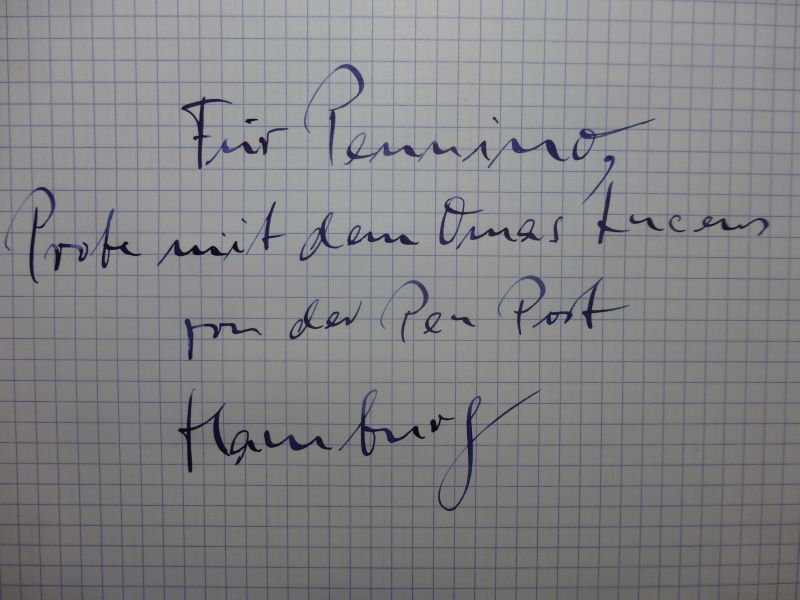 Für Pennino,
Probe mit dem Omas Lucens
von der Pen Port
Hamburg